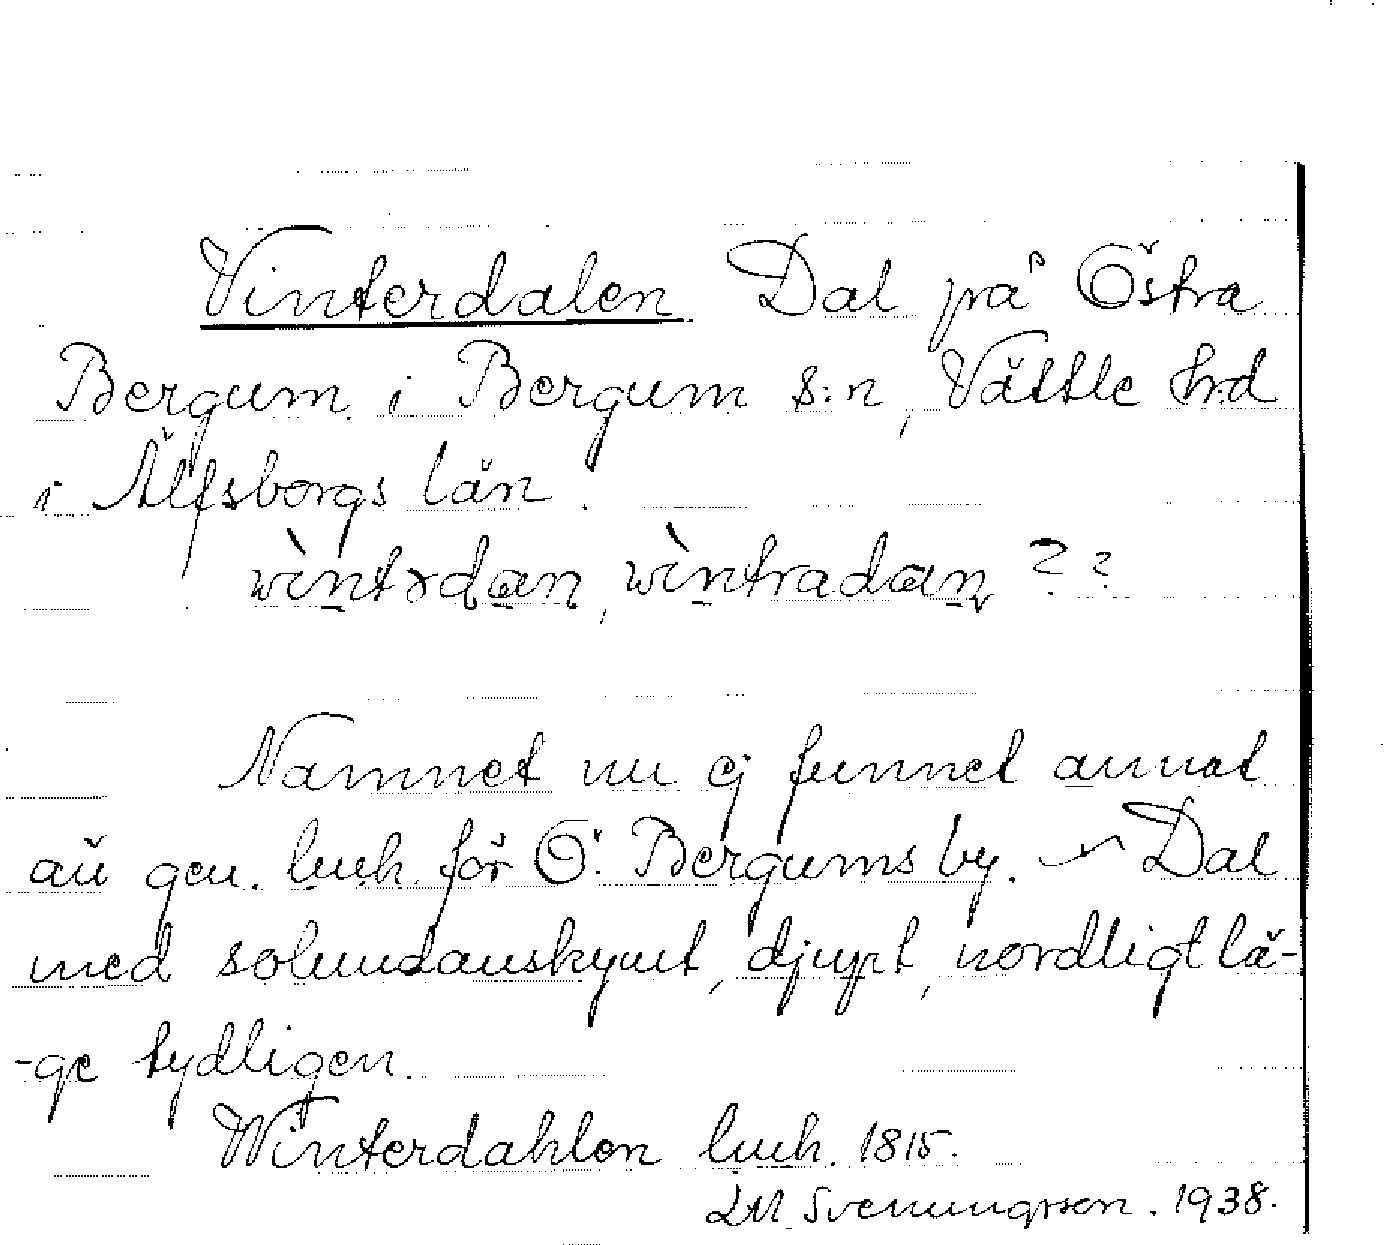 Vinterdalen Dal på Östra
Bergum i Bergum s:n, Vättle hrd
i Älfsborgs län.
wìntrdan, wìntradan ??
Namnet nu ej funnet annat
än gen. luk. för Ö. Bergums by. Dal
med solundanskymt, djupt, nordligt lä-
-ge tydligen.
Winterdahlen luk. 1815.
Svenungsson. 1938.